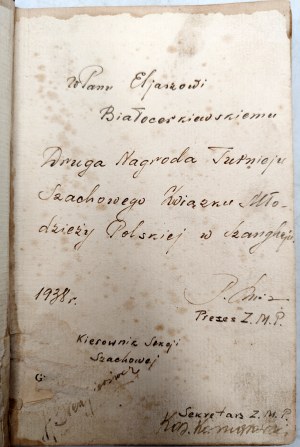 WPanu Eljaszowi
Białocerkiewskiemu
Druga Nagroda Turnieju
Szachowego Związku Mło-
dzieży Polskiej w Szanghaju
1938r.
Prezes Z.M.P.
Kierownik Sekcji
Szachowej
G
Sekretarz Z.M.P.